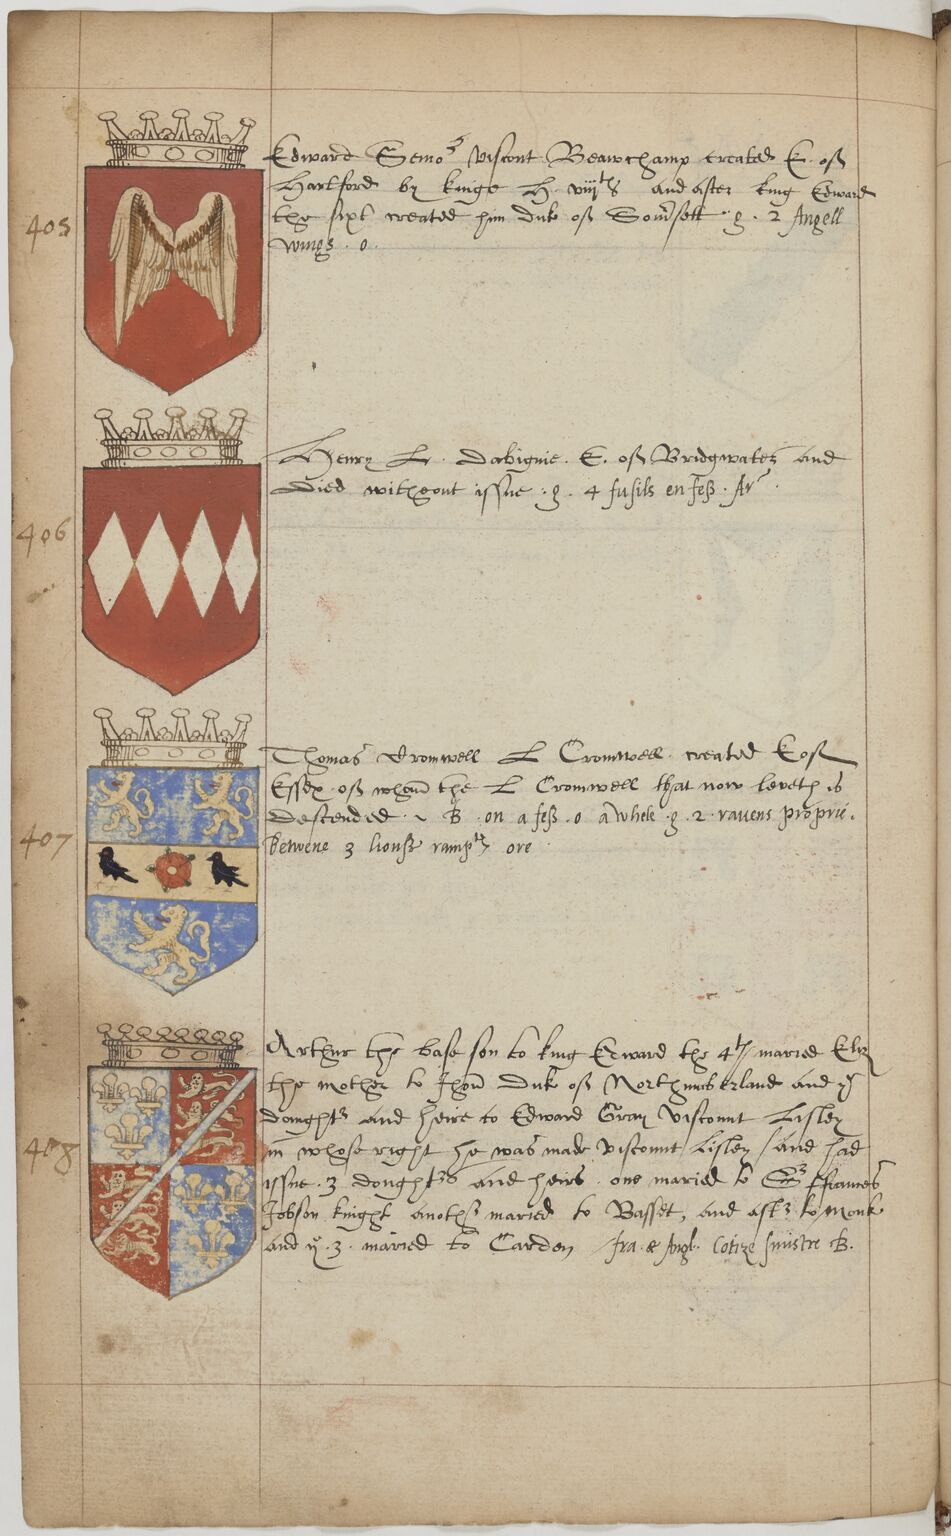 405
Edward Semor viscont Beawchamp created E. off
Hartford by kinge H. viijth and after king Edward
the sixt created him duk off Somersett . g . 2 Angell
wings . o .
406
Henry L. Dabignie . E. off Bridgwater and
died without issue . g . 4 fusils en fess . Ar .
407
Thomas Cromwell L Cromwell . created E off
Essex . off whom the L Cromwell that now leveth is
descended . B . on a fess . o . a whele . g . 2 . ravens proprie .
betwene 3 lions rampt ore
408
Arthur the base son to king Edward the 4th maried Eliz
the mother to Jhon Duk off Northumberland and
doughtr and heire to Edward Gray viscount Lisley
in whose right he was made viscount Lisley / and had
issue . 3 doughtrs and heirs . one maried to Sr ffrances
Jobson knight anothr maried to Basset, and aftr to Monk
and ye . 3 . maried to Carden fra . & Angl . Cotize sinistre B.